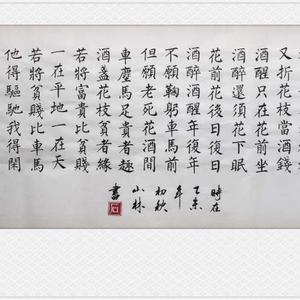 又折花枝當酒錢
酒醒只在花前坐
酒醉還須花下眠
花前花後日復日
酒醉酒醒年復年
不願鞠躬車馬前
但願老死花酒間
車塵馬足貴者趣
酒盞花枝貧者緣
若將富貴比貧賤
一在平地一在天
若將貧賤比車馬
他得驅馳我得閑
時在
乙未
年
初秋
小林
書